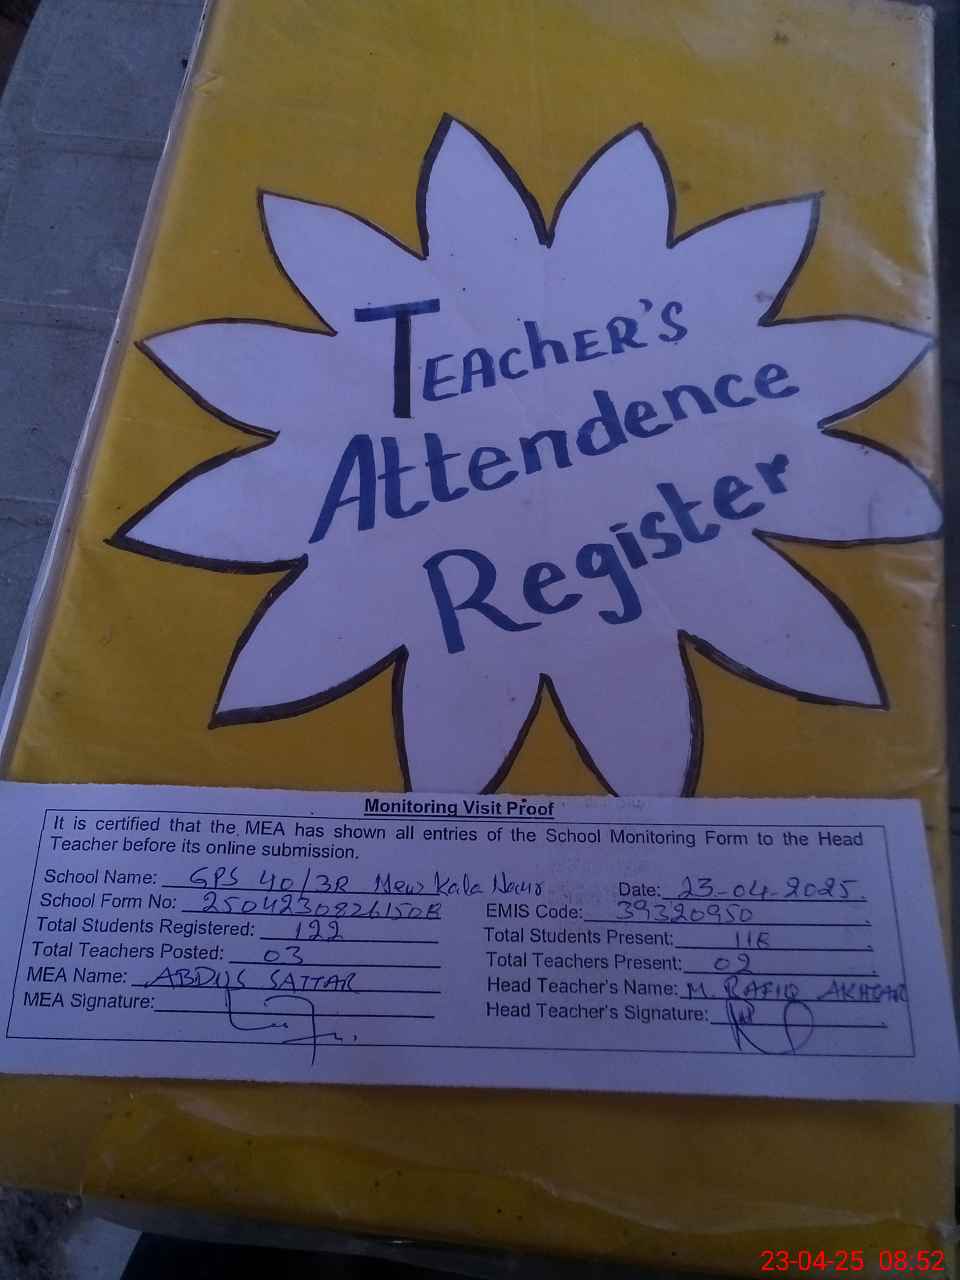 TEAChER'S
Attendence
Register
Monitoring Visit Proof
It is certified that the MEA has shown all entries of the School Monitoring Form to the Head
Teacher before its online submission.
School Name: GPS 40/3R New Kala Date: 23-04-2025.
School Form No: EMIS Code: 39320950
Total Students Registered: 122 Total Students Present:
Total Teachers Posted: 03 Total Teachers Present: 02
MEA Name: ABDUS SATTAR Head Teacher's Name: M. RAFIQ AKHTAR
MEA Signature: Head Teacher's Signature:
23-04-25 08:52